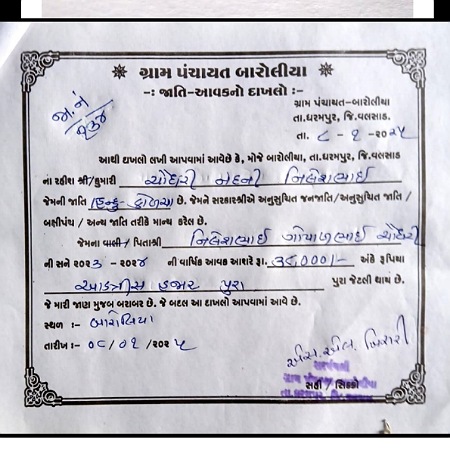 ગ્રામ પંચાયત બારોલીયા
-ઃ જાતિ-આવકનો દાખલો :-
જા. નં
૨૩૪
ગ્રામ પંચાયત-બારોલીયા,
તા.ધરમપુર, જિ.વલસાડ.
તા. ૮ - ૧ -૨૦૨૫
આથી દાખલો લખી આપવામાં આવેછે કે, મોજે બારોલીયા, તા.ધરમપુર, જિ.વલસાડ
ના રહીશ શ્રી/કુમારી ચૌધરી નિલેશભાઈ
જેમની જાતિ હિન્દુ- ધોળીયા છે. જેમને સરકારશ્રીએ અનુસુચિત જનજાતિ/અનુસુચિત જાતિ /
બક્ષીપંચ / અન્ય જાતિ તરીકે માન્ય કરેલ છે.
જેમના વાલી/પિતાશ્રી નિલેશભાઈ ગોપાળભાઈ ચૌધરી
ની સને ૨૦૨૩ - ૨૦૨૪ ની વાર્ષિક આવક આશરે રૂા. અંકે રૂપિયા
હજાર પુરા પુરા જેટલી થાય છે.
જે મારી જાણ મુજબ બરાબર છે. જે બદલ આ દાખલો આપવામાં આવે છે.
સ્થળ :- બારોલિયા
તારીખ :- ૦૮/૦૧/૨૦૨૫
એસ. એલ.
સરપંચશ્રી
સહી / સિક્કો